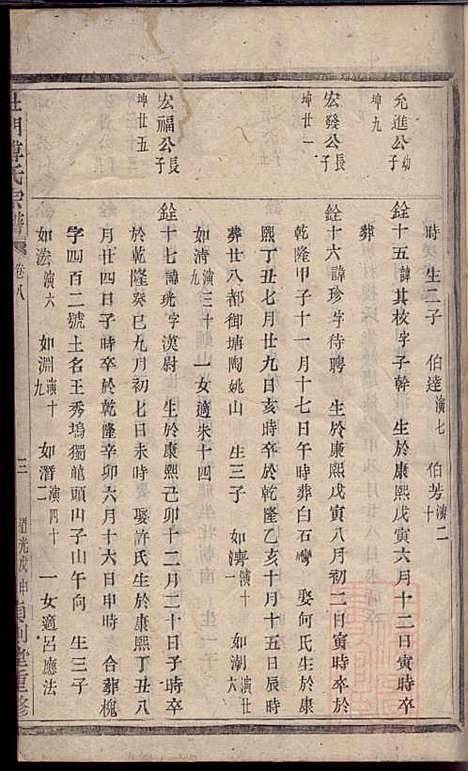 允進公幼子
坤九
宏發公長子
坤廿一
宏福公長子
坤廿五
時 生二子 伯達演七 伯芳演二十
銓十五諱其枝字子幹 生於康熙戊寅六月十二日寅時卒
葬
銓十六諱珍字待聘 生於康熙戊寅八月初二日寅時卒於
乾隆甲子十一月十七日午時葬白石灣 娶何氏生於康
熙丁丑七月廿九日亥時卒於乾隆乙亥十月十五日辰時
葬廿八都御塘陶姚山 生三子 如濟演十一 如潮演廿六
如清演三十九 一女適朱十四
銓十七諱珖字漢尉 生於康熙己卯十二月二十日子時卒
於乾隆癸巳九月初七日未時 娶許氏生於康熙丁丑八
月廿四日子時卒於乾隆辛卯六月十六日申時 合葬槐
字四百二號土名王秀塢獨龍頭山子山午向 生三子
如浤演六 如淵演十九 如潛演四十二 一女適呂應法
杜門傅氏宗譜 卷八 三 道光戊申